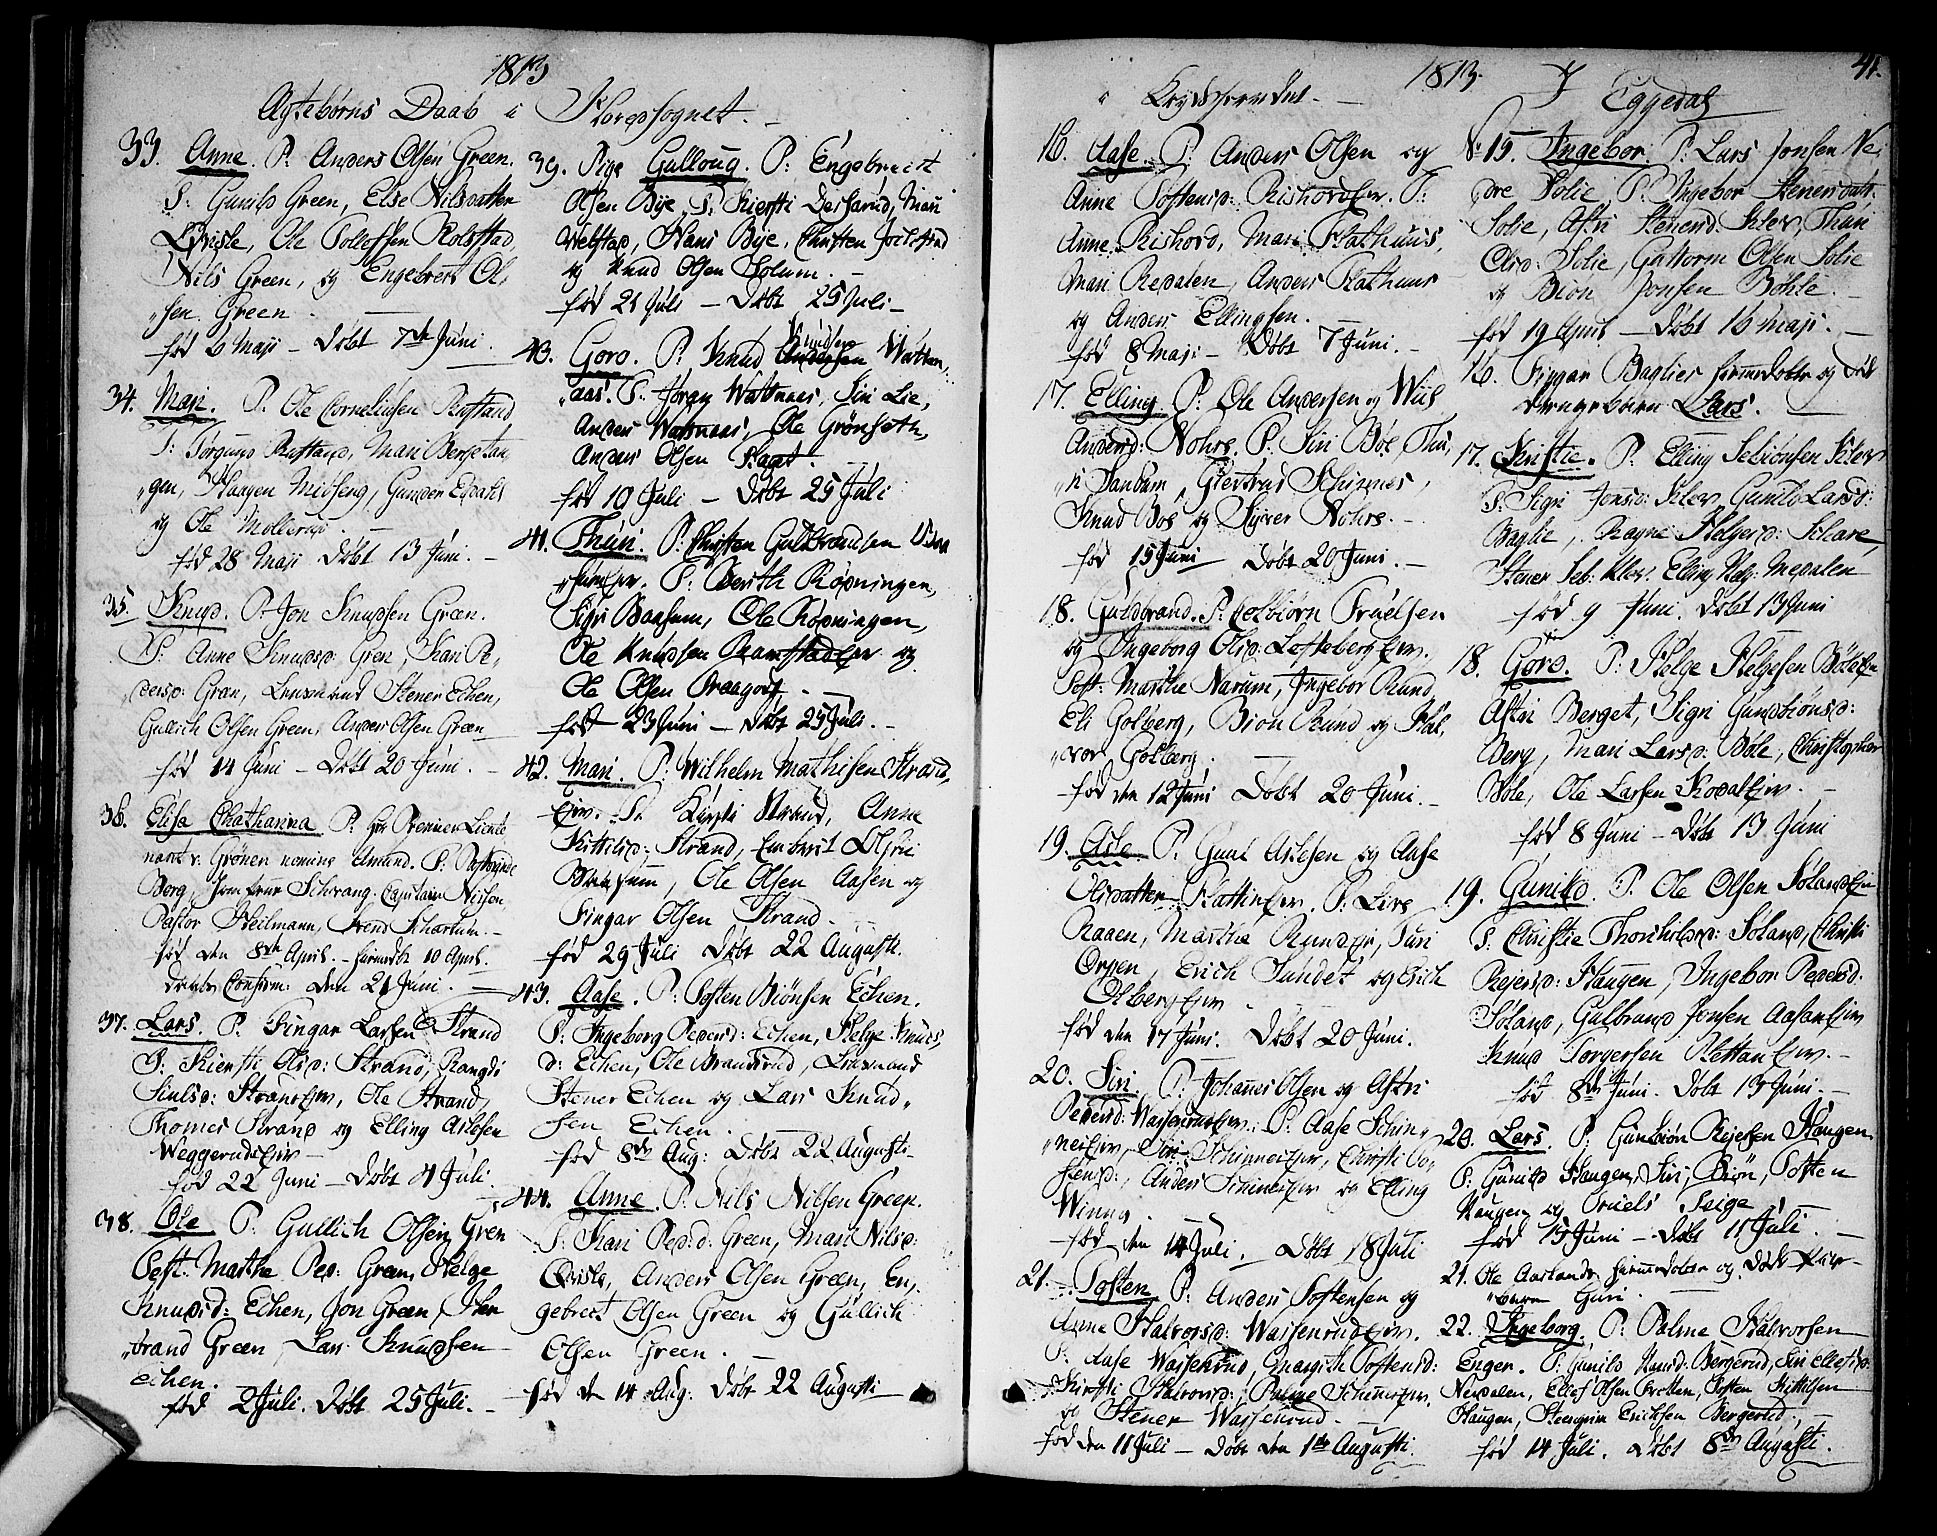 1813
Ægtebørns Daab i Hovedsognet.
33. Anne. P. Anders Olsen Green.
S: Gunild Green, Else Nilsdatter
Qvisle, Ole Tollefsen Rolfstad,
Nils Green, og Engebret Ol-
sen Green.
fød 6 Maji - Døbt 7de Juni.
34. Mari. P. Ole Corneliusen Rustand
S: Jørgund Rustand, Mari Bergetan
gen, Haagen Midseng, Gunder
og Ole Mollerud.
fød 28 Maji Døbt 13 Juni.
35. Knud. P. Jon Knudsen Green.
S: Anne Knudsd: Gren, Kari Pe-
dersd: Green, Lensmand Stener Echen,
Gullich Olsen Green, Anders Olsen Green
fød 14 Juni - Døbt 20 Juni.
36. Elisa Chatharina P. Hr Premier Lieute
nant v. Grøner nomine Amund. S:
Borg, Jomfrue Schwang, Capitain Nielsen,
Pastor Heilmann, Svend Schartum.
fød den 8de April. - hiemdøbt 10 April.
Daabs Confirm: den 21 Juni.
37. Lars. P. Fingar Larsen Strand
S: Kiersti Olsd: Strand, Rangdi
Strand Eier, Ole Strand,
Thomes Strand og Elling Aslesen
Weggerudseier
fød 22 Juni - Døbt 4 Juli.
38. Ole P: Gullich Olsen Gren
Test: Marthe Ped: Green, Helge
Knudsd: Echen, Jon Green,
trand Green, Lars Knudsen
Echen.
fød 2 Juli. Døbt 25 Juli.
39. Pige Gulloug. P: Engebrecht
Olsen Bye. S: Kiersti Desserud, Mari
Welstad, Hans Bye, Christen
og Knud Olsen Solum.
fød 21 Juli - Døbt 25 Juli
40. Goro. P. Knud Andersen Knudsen Watten-
aas. S. Jøran Watnaas, Siri Lie,
Anders Watnaas, Ole Grønseth,
Anders Olsen Flaget.
fød 10 Juli - Døbt 25 Juli
41. Thuri. P. Christen Guldbrandsen
S: Berith Rødningen,
Sigri Baaseum, Ole Rødningen,
Ole Knudsen Ramstadeier og
Ole Olsen Braagord.
født 23 Juni - Døbt 25 Juli.
42. Mari. P: Wilhelm Mathisen Strand-
Eier. S: Kirsti Strand, Anne
Kittilsd: Strand, Embret Olsen
Ole Olsen Aasen og
Fingar Olsen Strand.
fød 29 Juli Døbt 22 Augusti.
43. Aase. P: Tosten Biønsen Echen.
S: Ingeborg Pedersd: Echen, Helge Knuds
d: Echen, Ole Brandsrud, Lensmand
Stener Echen og Lars Knud-
sen Echen.
fød 8de Aug: Døbt 22 Augusti
44. Anne. P. Nils Nilsen Green.
S: Kari Pedsd: Green, Mari Nilsd:
Qvisle, Anders Olsen Green, En-
gebrect Olsen Green og Gullich
Olsen Green.
fød de 14 Aug: Døbt 22 Augusti
1813.
Krydsherredet.
16. Aase. P: Anders Olsen og
Anne Tostensd: Rishordeier. S:
Anne Rishord, Mari Flathuus,
Mari Redalen, Anders Flathuus
og Anders Ellingsen.
fød 8 Maji - Døbt 7 Juni.
17. Elling. P. Ole Andersen og
Andersd: Nohre. P. Siri Bøe, Thu-
ri Sandum, Giertrud Schinnes,
Knud Boe og Syver Nohre.
fød 15 Juni Døbt 20 Juni.
18. Guldbrand. P: Colbiørn Truelsen
og Ingeborg Olsd: Lofteberg Eier.
Test: Marthe Narum, Ingebor Rund,
Eli Golberg, Bion Rund og Hal-
vor Golberg.
fød den 12 Juni Døbt 20 Juni.
19. Asle P. Gunl Aslesen og Aase
Olsdatter P: Live
Raaen, Marthe Rundeier, Turi
Orpen, Erich Sundet og Erich
Olbergeier
fød den 17 Juni. Døbt 20 Juni.
20. Siri. P: Johannes Olsen og Astri
Pedersd: Wassenrudeier. P. Aase Schin-
neseier, Siri Schinneseier, Christi To-
stensd:, Anders Schinneseier og Elling
Winnes.
fød den 14 Juli. Døbt 18 Juli
21. Tosten. P: Anders Tostensen og
Anne Halvorsd: Wassenrudeier.
P: Aase Wassenrud, Margith Tostensd:
Kiersti Halvorsd:, Palme Schinneseier,
og Stener Wassenrud.
fød den 11 Juli - Døbt den 1ste Augusti.
I Eggedal
41.
No 15. Ingebor. P: Lars Jonsen Ne-
dre Solie, P: Ingebor Stenersdatr
Solie, Astri Stenersd: Klev, Thuri
Olsd: Solie, Guttorm Olsen Solie
og Bion Jonsen Bøhle.
fød 19 April - Døbt 16 Maji.
16. Fingar Baglier hiemedøbte og død
Drengebarn Lars.
17. Kiristie. P: Elling Sebiønsen Klev
S: Sigri Jonsd: Klev, Gunild Larsd:
Baglie, Ragne Helgesd: Schare,
Stener Seb: Klev, Elling Helg: Medalen
fød 9 Juni. Døbt 13 Juni
18. Goro. P: Helge Helgesen Bøle
Astri Berget, Sigri Gunbiønsd:
Berg, Mari Larsd: Bøle, Christopher
Bøle, Ole Larsen
fød 8 Juni - Døbt 13 Juni
19. Gunild. P. Ole Olsen Søland
S. Christie Thorkildsd: Søland, Christi
Rejersd: Haugen, Ingebor Pedersd:
Søland, Gulbrand Jonsen Aasaneier
Knud Torgersen
fød 8de Juni. Døbt 13 Juni.
20. Lars. P: Gunbiøn Rejersen Haugen.
P: Gunild Haugen, Siri, Biøn, Tosten
Haugen og Truels Teige
fød 15 Juni - Døbt 11 Juli.
21. Ole Aaslands hiemedøbte og døde Pige-
barn Guri.
22. Ingeborg. P: Palme Halvorsen
Enger. P: Gunild Knud: Bergerud, Siri Ellefsd:
Nerdalen, Ellef Olsen Bratten, Tosten Kittilsen
Haugen, Steengrim Ericksen Bergerud.
fød 14 Juli. Døbt 8de Augusti.